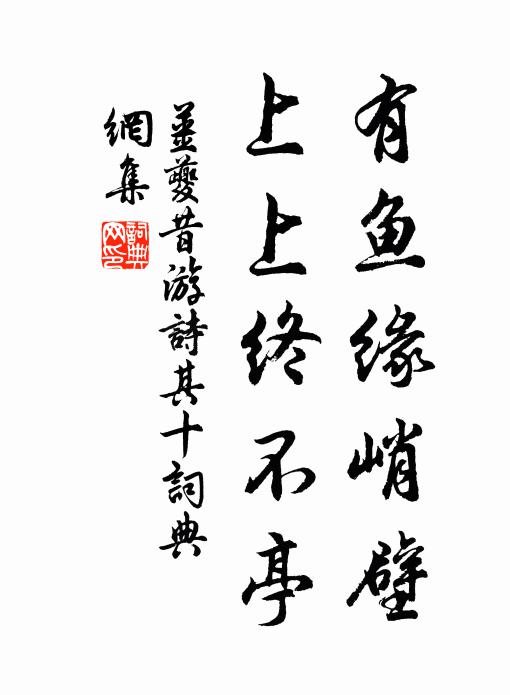 有鱼缘峭壁
上上终不亭
姜夔昔游詩其十詞典
網集
詞典
网印